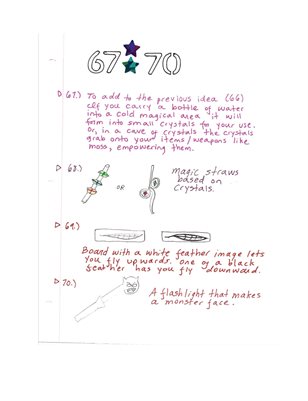 67 70
67.) To add to the previous idea (66)
If you carry a bottle of water
into a cold magical area it will
form into small crystals for your use.
Or, in a cave of crystals the crystals
grab onto your items/weapons like
moss, empowering them.
68.)
OR
magic straws
based on
crystals.
69.)
Board with a white feather image lets
you fly upwards. One of a black
feather has you fly downward.
70.)
A flashlight that makes
a monster face.